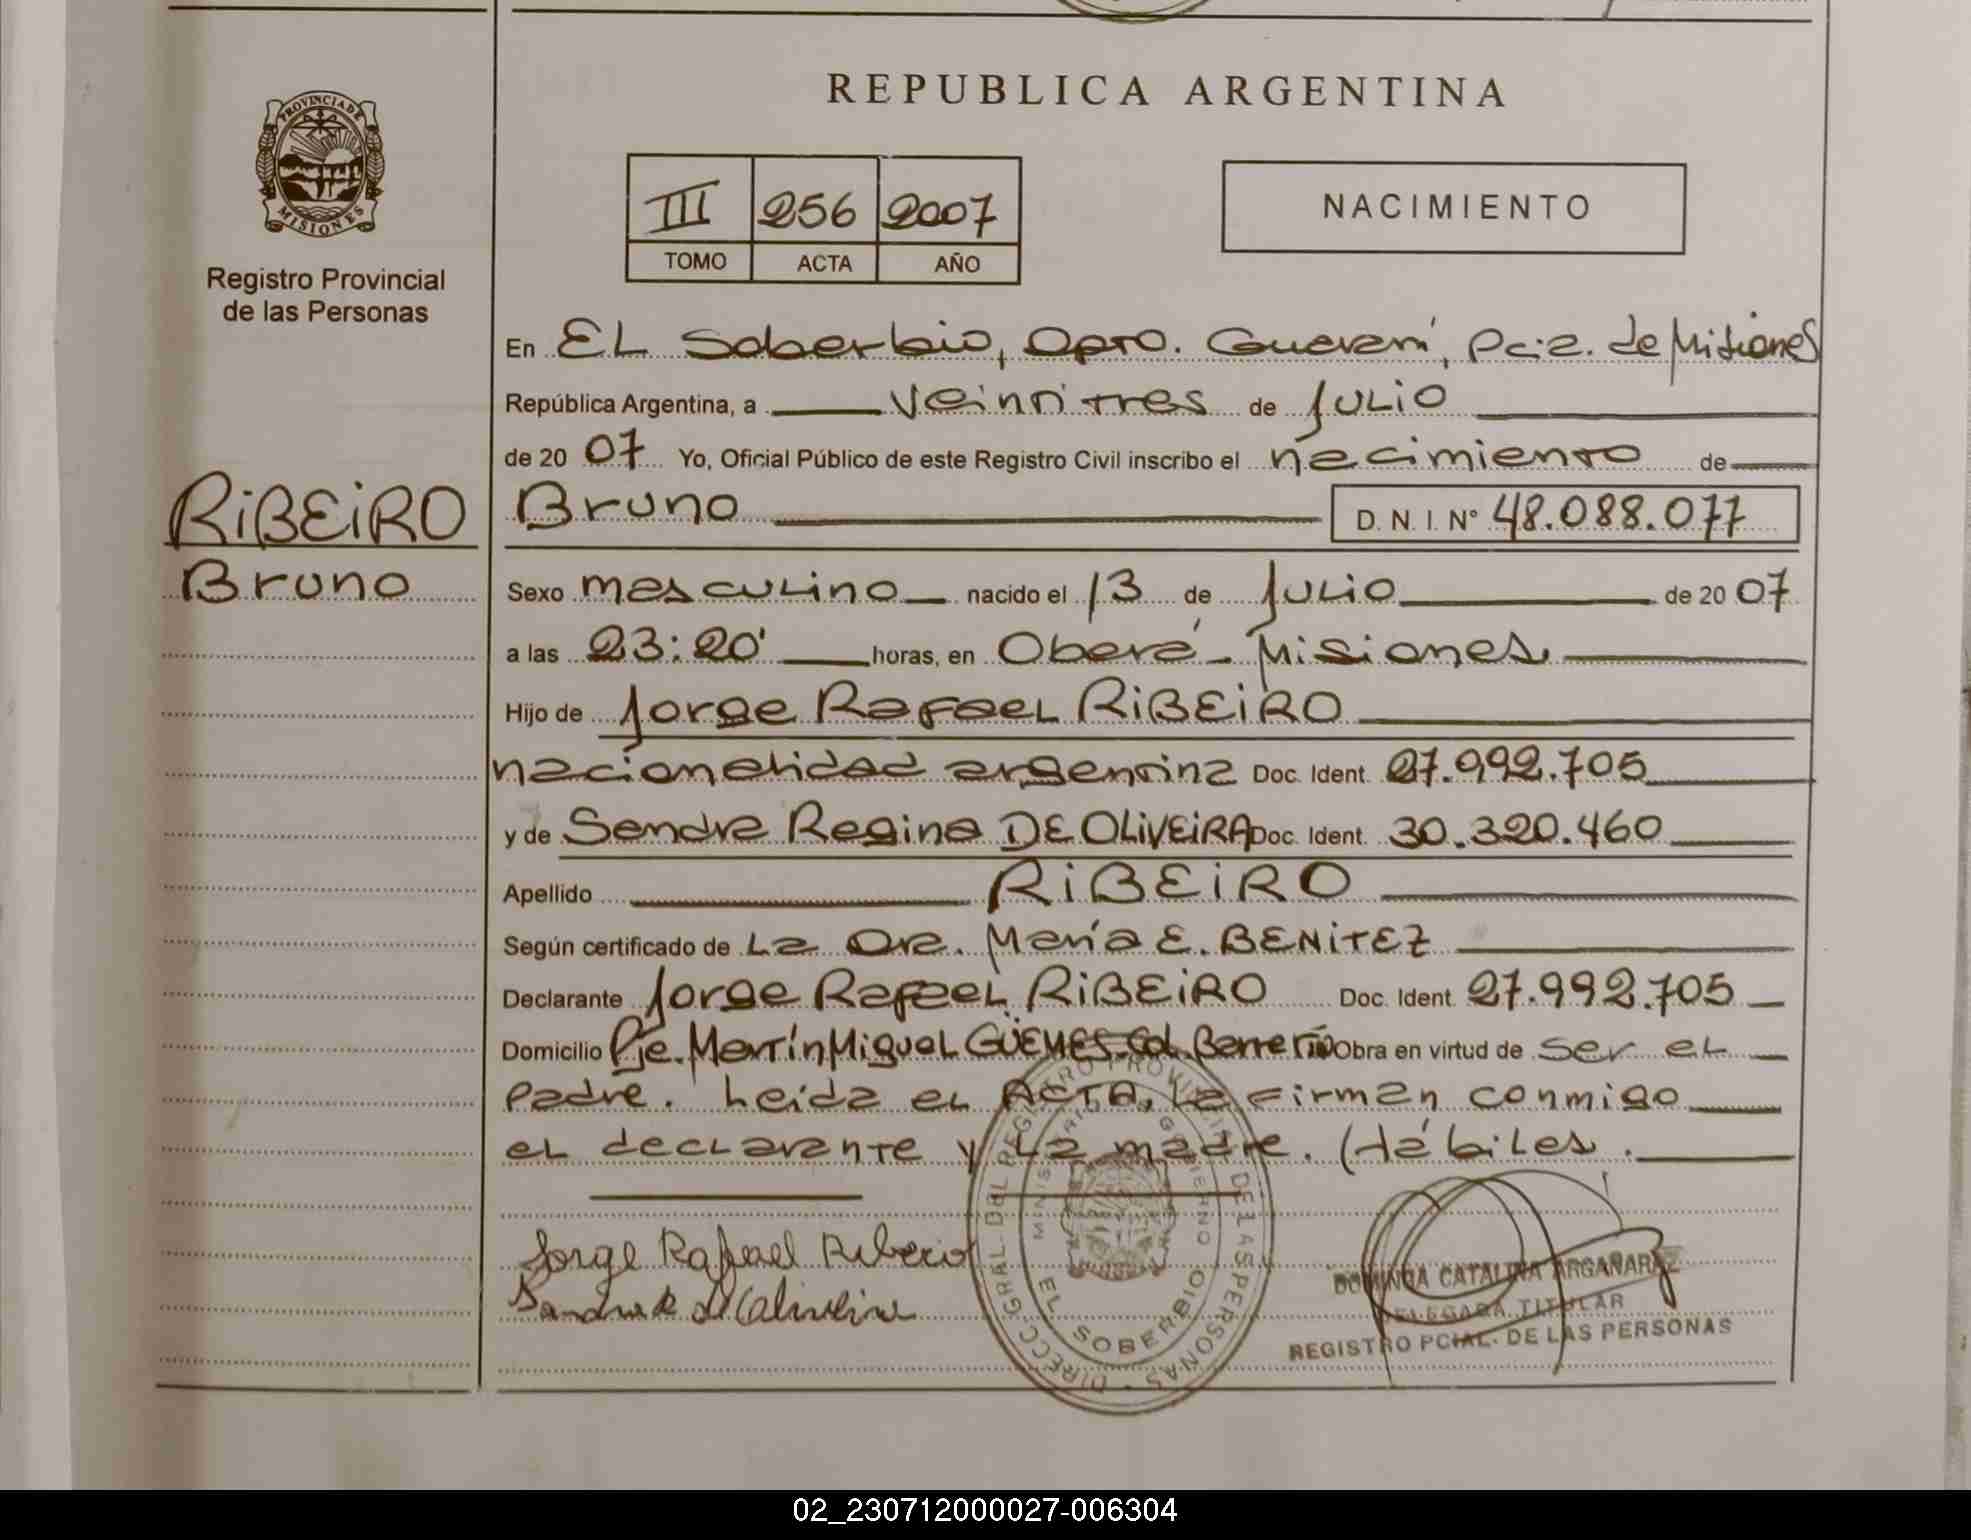 REPUBLICA ARGENTINA
PROVINCIA DE MISIONES
Registro Provincial
de las Personas
III 256 2007
TOMO ACTA AÑO
NACIMIENTO
RIBEIRO
Bruno
En EL Soberbio, Dpto. Guaraní, Pcia. de Misiones
República Argentina, a veintitres de Julio
de 2007 Yo, Oficial Público de este Registro Civil inscribo el nacimiento de
Bruno D. N. I. Nº 48.088.077
Sexo masculino nacido el 13 de Julio de 2007
a las 23:20' horas, en Oberá - Misiones.
Hijo de Jorge Rafael RIBEIRO
nacionalidad argentina Doc. Ident. 27.992.705
y de Sandra Regina DE OLIVEIRA Doc. Ident. 30.320.460
Apellido RIBEIRO
Según certificado de La Dra. María E. BENITEZ
Declarante Jorge Rafael RIBEIRO Doc. Ident. 27.992.705
Domicilio Pje. Martín Miguel GÜEMES-Col. Obra en virtud de ser el
padre. Leída el ACTA, la firman conmigo
el declarante y la madre. Hábiles.
Jorge Rafael Ribeiro
Sandra R de Oliveira
DIRECC. GRAL. DEL REGISTRO PROVINCIAL DE LAS PERSONAS
MINISTERIO DE GOBIERNO
EL SOBERBIO
DOMINGA CATALINA ARGAÑARAZ
DELEGADA TITULAR
REGISTRO PCIAL. DE LAS PERSONAS
02_230712000027-006304